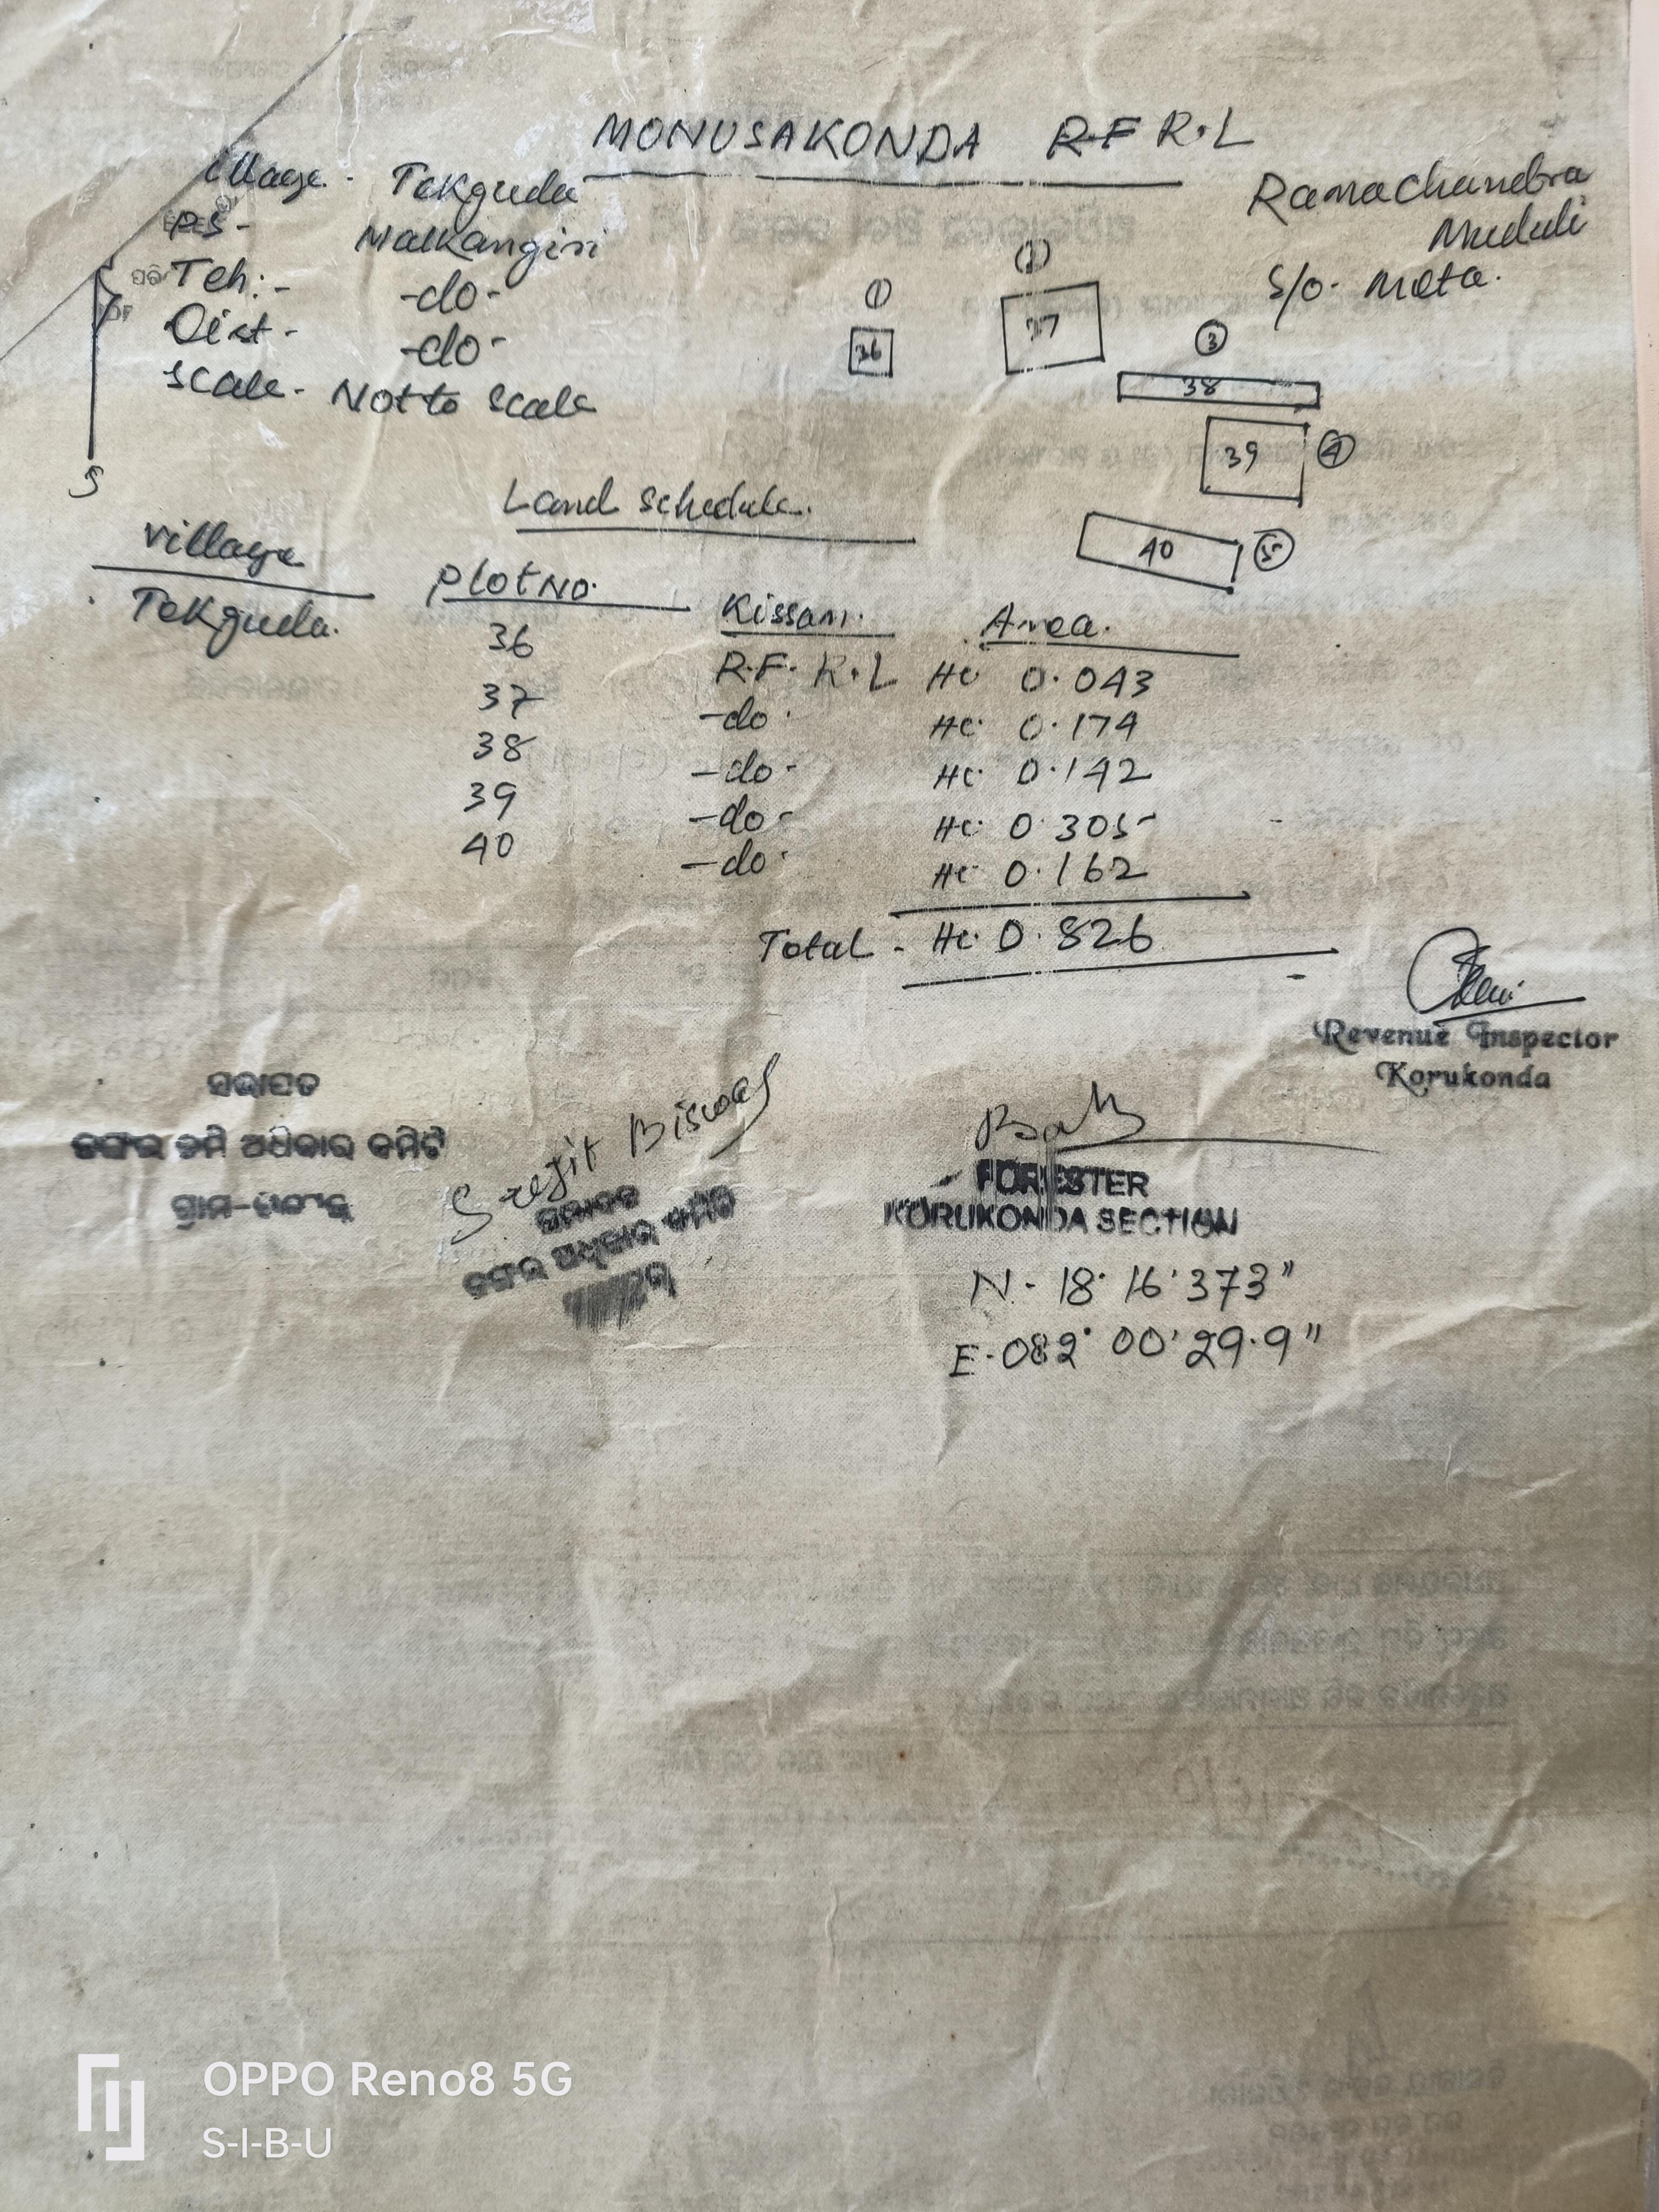 MONUSAKONDA R.F R.L
Village - Tekguda
PS - Malkangiri
Teh:- -do-
Dist - -do-
Scale - Not to Scale
S
Ramachandra
Muduli
S/o- Meta.
①
36
②
37
③
38
39 ④
40 ⑤
Land schedule.
Village Plot No. Kissam. Area.
Tekguda. 36 R.F. R.L Hc 0.043
37 -do- Hc 0.174
38 -do- Hc 0.142
39 -do- Hc 0.305
40 -do- Hc 0.162
Total - Hc 0.826
Revenue Inspector
Korukonda
ସଭାପତି
ଜଙ୍ଗଲ ଜମି ଅଧିକାର କମିଟି
ଗ୍ରାମ-
Srejit Biswas
ସଭାପତି
ଜଙ୍ଗଲ ଅଧିକାର କମିଟି
FORESTER
KORUKONDA SECTION
N - 18° 16' 373"
E - 082° 00' 29.9"
OPPO Reno8 5G
S-I-B-U